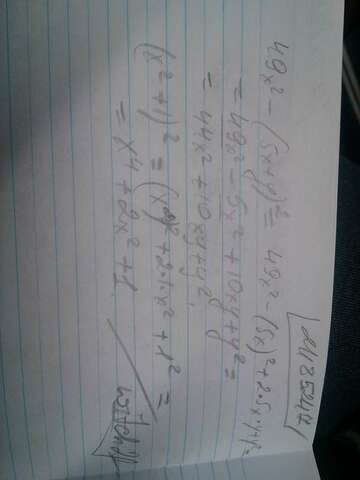 49x² - (5x+y)² = 49x² - (5x)² + 2·5x·y+y²=
= 49x² - 5x² + 10xy + y² =
= 44x² + 10xy + y²
(x²+1)² = (x²)² + 2·1·x² + 1² =
= x4 + 2x² + 1